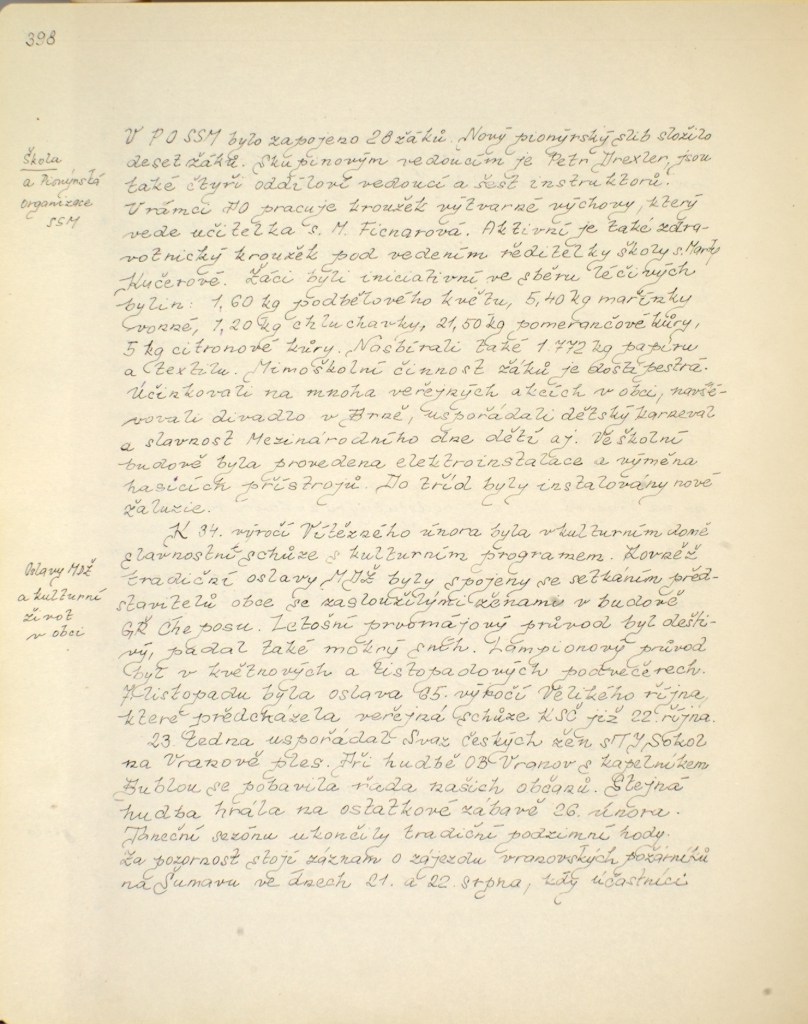 398
Škola
a Pionýrská
organizace
SSM
V PO SSM bylo zapojeno 28 žáků. Nový pionýrský slib složilo
deset žáků. Skupinovým vedoucím je Petr Drexler, jsou
také čtyři oddíloví vedoucí a šest instruktorů.
V rámci PO pracuje kroužek výtvarné výchovy, který
vede učitelka s. M. Ficnarová. Aktivní je také zdra-
votnický kroužek pod vedením ředitelky školy s. Marty
Kučerové. Žáci byli iniciativní ve sběru léčivých
bylin: 1,60 kg podbělového květu, 5,40 kg mařinky
vonné, 1,20 kg chluchavky, 21,50 kg pomerančové kůry,
5 kg citronové kůry. Nasbírali také 1.772 kg papíru
a textilu. Mimoškolní činnost žáků je dosti pestrá.
Účinkovali na mnoha veřejných akcích v obci, navště-
vovali divadlo v Brně, uspořádali dětský karneval
a slavnost Mezinárodního dne dětí aj. Ve školní
budově byla provedena elektroinstalace a výměna
hasících přístrojů. Do tříd byly instalovány nové
žaluzie.
Oslavy MDŽ
a kulturní
život
v obci
K 34. výročí Vítězného února byla v kulturním domě
slavnostní schůze s kulturním programem. Rovněž
tradiční oslavy MDŽ byly spojeny se setkáním před-
stavitelů obce se zasloužilými ženami v budově
GŘ Cheposu. Letošní prvomájový průvod byl dešti-
vý, padal také mokrý sníh. Lampionový průvod
byl v květnových a listopadových podvečerech.
7. listopadu byla oslava 65. výročí Velikého října,
které předcházela veřejná schůze KSČ již 22. října.
23. ledna uspořádal Svaz českých žen s TJ Sokol
na Vranově ples. Při hudbě OB Vranov s kapelníkem
Bublou se pobavila řada našich občanů. Stejná
hudba hrála na ostatkové zábavě 26. února.
Taneční sezónu ukončily tradiční podzimní hody.
Za pozornost stojí záznam o zájezdu vranovských požárníků
na Šumavu ve dnech 21. a 22. srpna, kdy účastníci